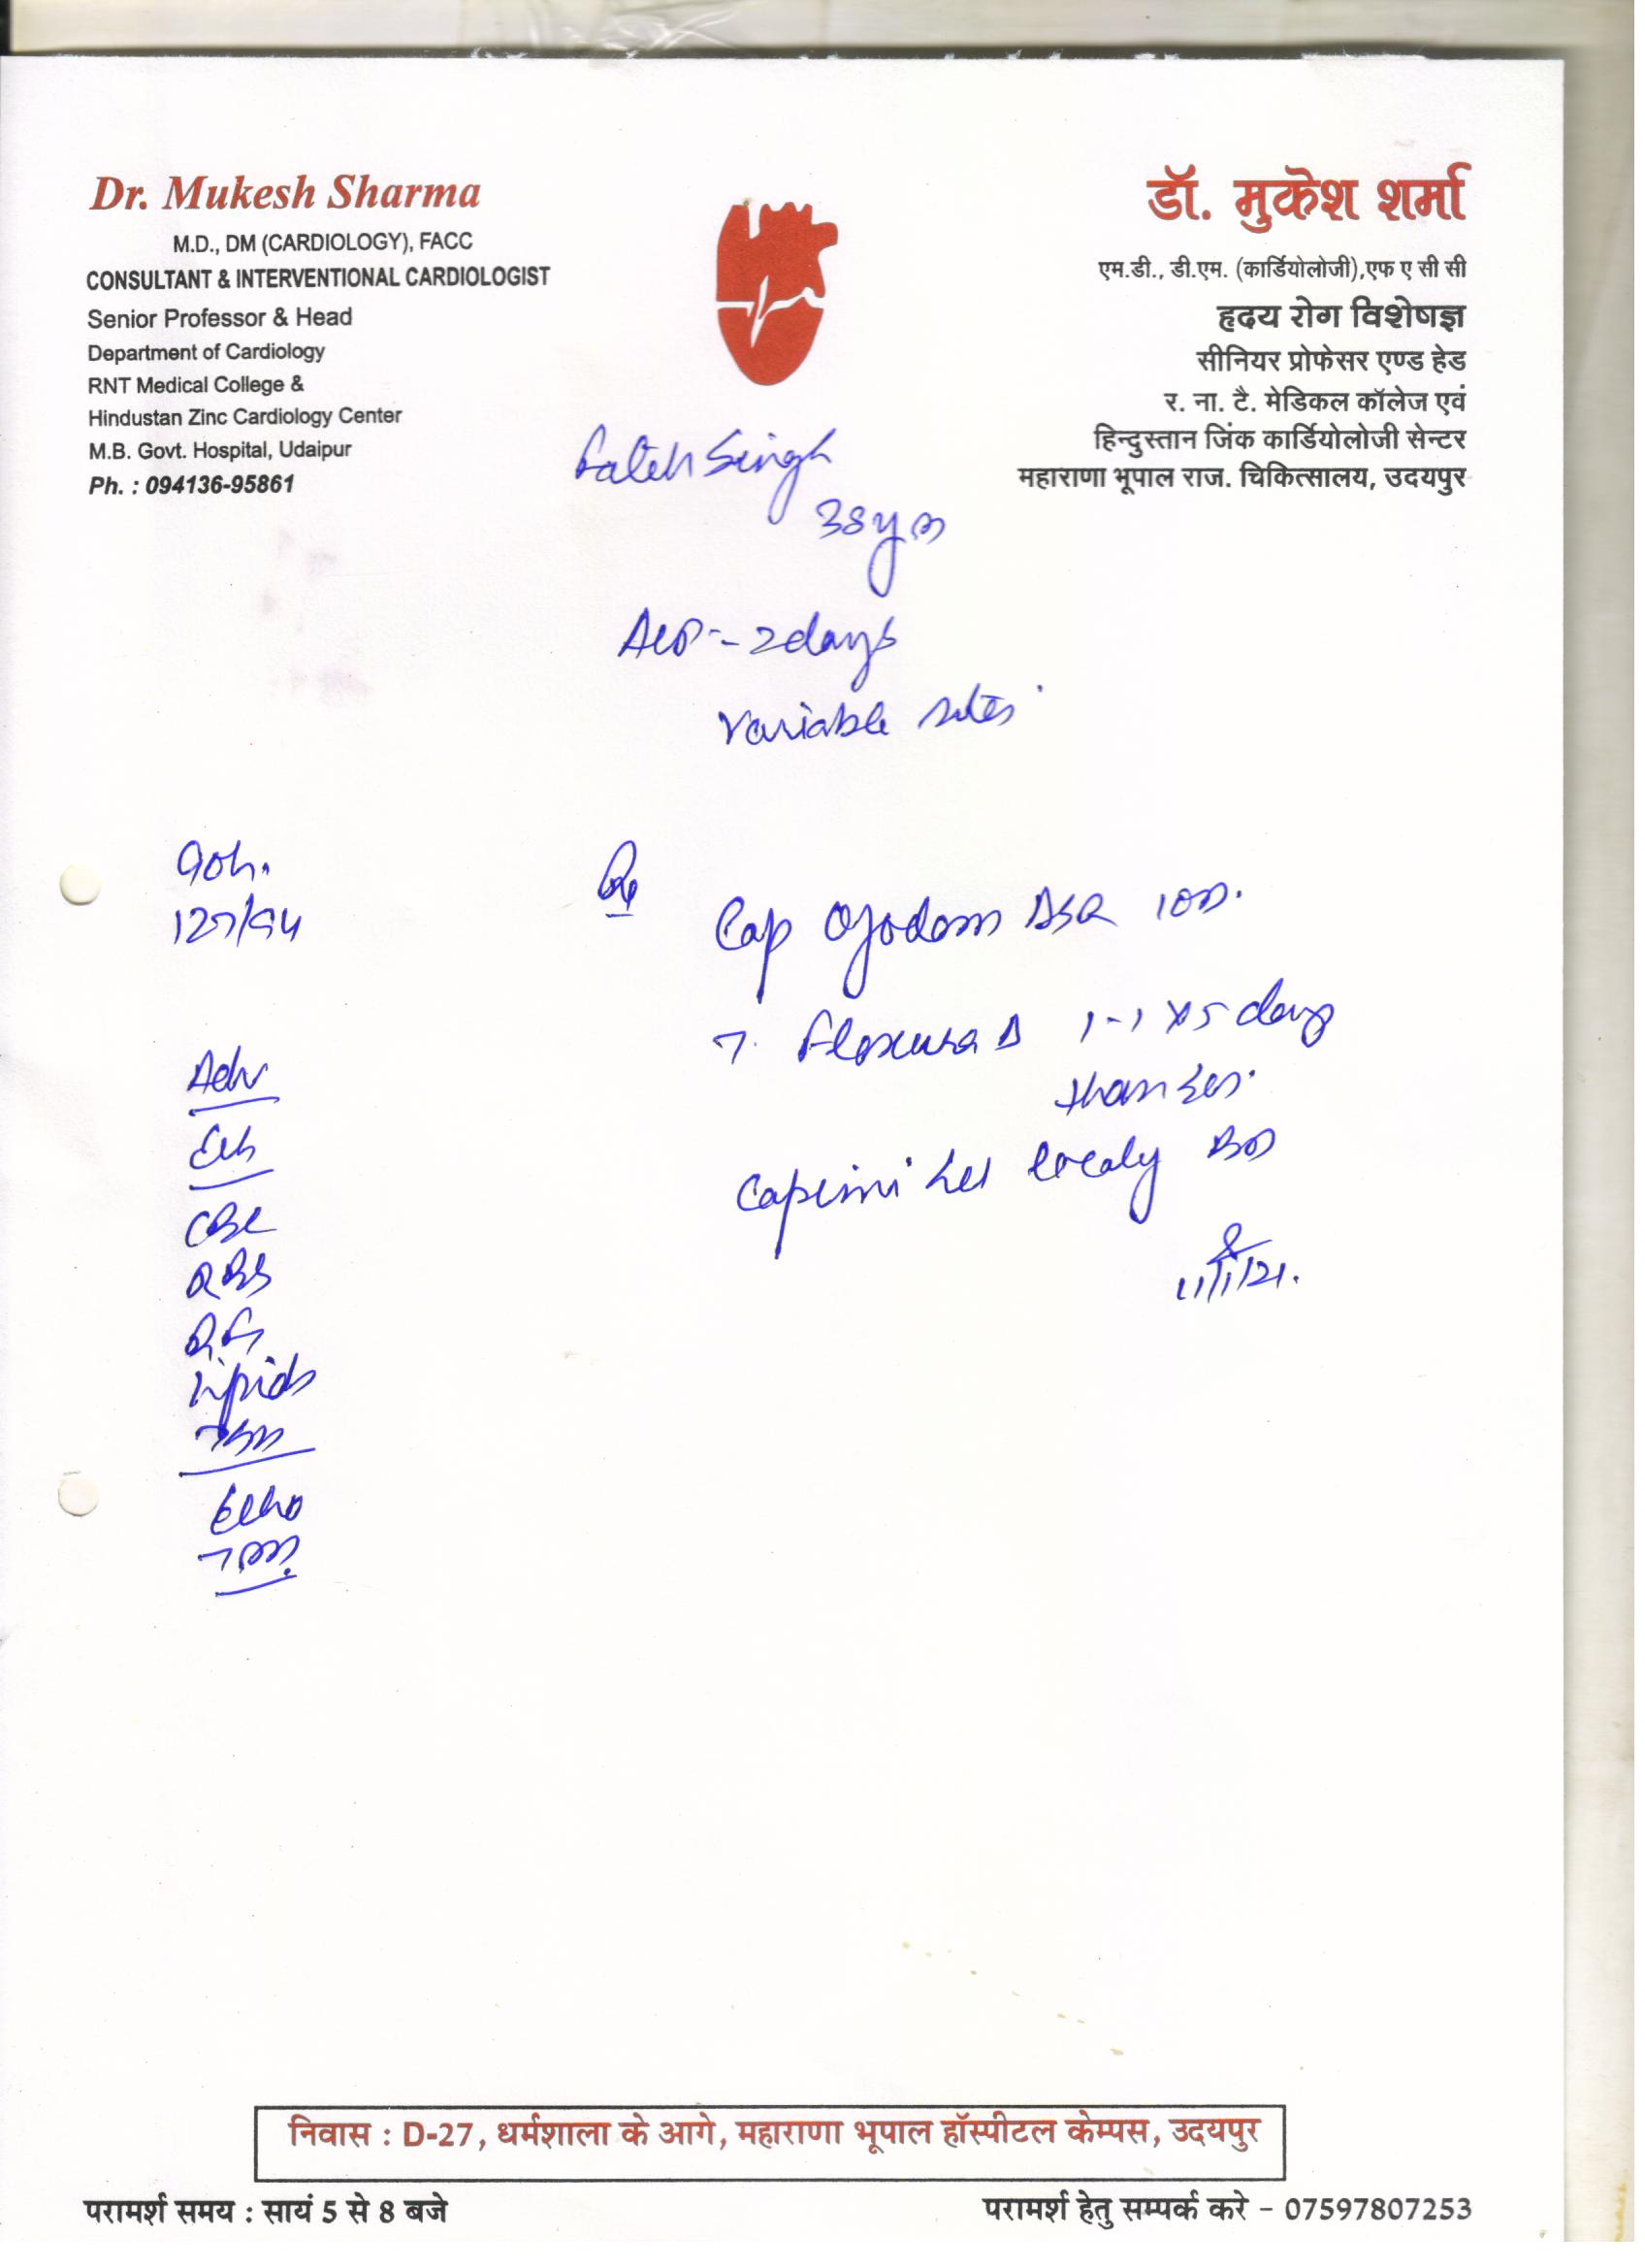 Dr. Mukesh Sharma
M.D., DM (CARDIOLOGY), FACC
CONSULTANT & INTERVENTIONAL CARDIOLOGIST
Senior Professor & Head
Department of Cardiology
RNT Medical College &
Hindustan Zinc Cardiology Center
M.B. Govt. Hospital, Udaipur
Ph. : 094136-95861
डॉ. मुकेश शर्मा
एम.डी., डी.एम. (कार्डियोलोजी),एफ ए सी सी
हृदय रोग विशेषज्ञ
सीनियर प्रोफेसर एण्ड हेड
र. ना. टै. मेडिकल कॉलेज एवं
हिन्दुस्तान जिंक कार्डियोलोजी सेन्टर
महाराणा भूपाल राज. चिकित्सालय, उदयपुर
Fateh Singh
38y m
- 2days
Variable sites
Adv
CBC
RBS
Lipids
Echo
TMT
Rx
Cap DSR
T. 1-1 x5 days
localy BD
निवास : D-27, धर्मशाला के आगे, महाराणा भूपाल हॉस्पीटल केम्पस, उदयपुर
परामर्श समय : सायं 5 से 8 बजे
परामर्श हेतु सम्पर्क करे - 07597807253